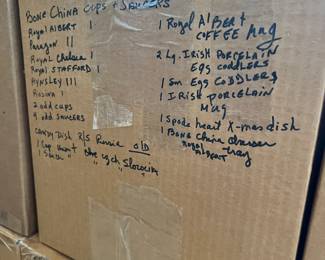 BONE CHINA CUPS + SAUCERS
ROYAL ALBERT 1
PARAGON 11
ROYAL Chelsea 1
ROYAL STAFFORD 1
AYNSLEY 111
ROSINA 1
2 odd cups
4 odd SAUCERS
CANDY DISH R/S Russia old
1 Cup
1
1 Royal AlBERT
COFFEE MUG
2 Lg. IRISH PORCELAIN
Egg CODDLERS
1 Sm Egg CODDLERS
1 IRISH PORCELAIN
MUG
1 Spode heart X-mas dish
1 BONE CHINA dresser
ROYAL ALBERT tray